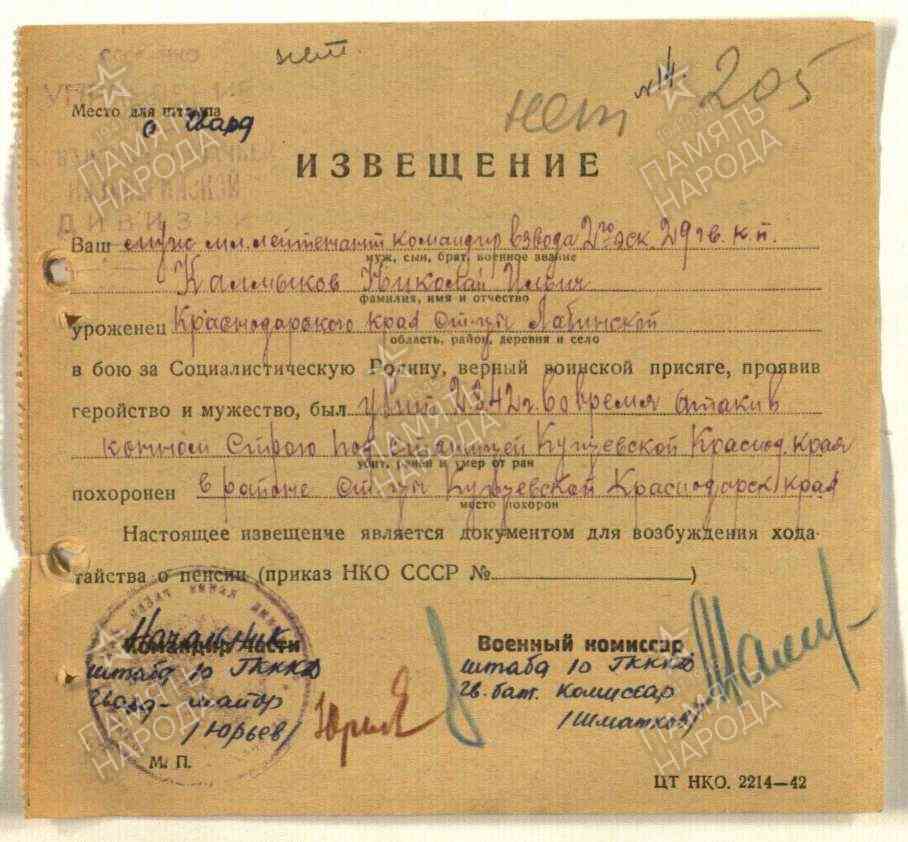 нет.
нет
№14.
205
Место для штампа
Гвард
ДИВИЗИИ
ИЗВЕЩЕНИЕ
Ваш муж мл. лейтенант командир взвода 2го эск. 29 гв. к.п.
муж, сын, брат, военное звание
Калмыков Николай Ильич
фамилия, имя и отчество
уроженец Краснодарского края ст-цы Лабинской
область, район, деревня и село
в бою за Социалистическую Родину, верный воинской присяге, проявив
геройство и мужество, был убит 2.8.42г. во время атаки в
конном строю под станицей Кущевской Краснод. края
убит, ранен и умер от ран
похоронен в районе ст-цы Кущевской Краснодарск края
место похорон
Настоящее извещение является документом для возбуждения хода-
тайства о пенсии (приказ НКО СССР № )
Начальник
Командир части
штаба 10 ГККД
Гвард- майор
/Юрьев/
М. П.
Военный комиссар
штаба 10 ГККД
Гв. бат. Комиссар
/Шматков/
ЦТ НКО. 2214—42
ПАМЯТЬ НАРОДА